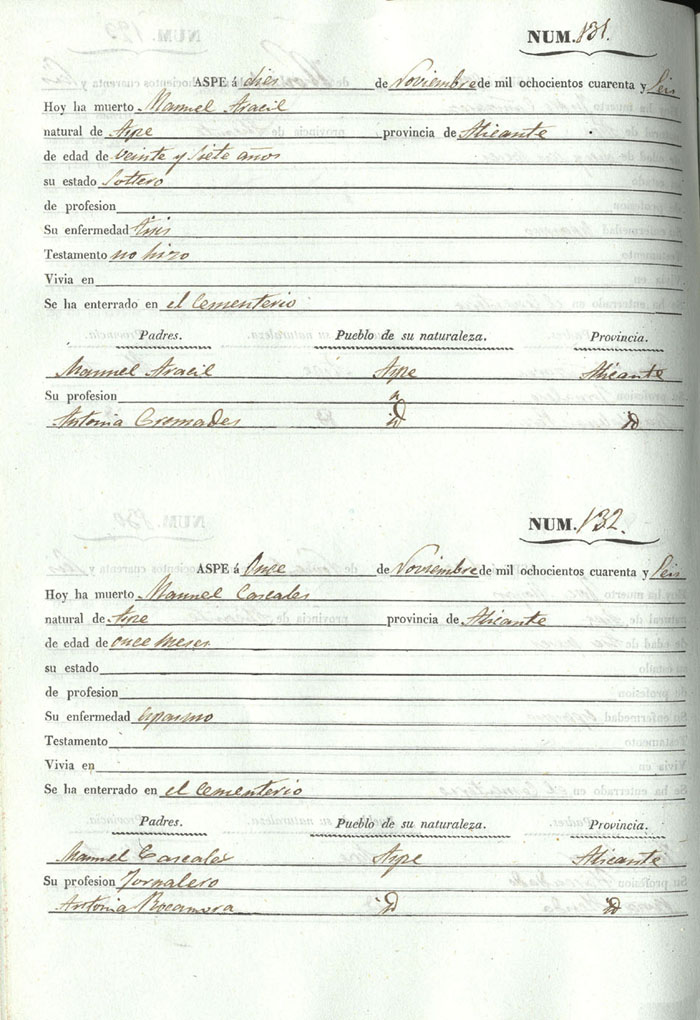 NUM. 131.
ASPE á dies de Noviembre de mil ochocientos cuarenta y seis
Hoy ha muerto Manuel Aracil
natural de Aspe provincia de Alicante
de edad de veinte y siete años
su estado Soltero
de profesion
Su enfermedad tisis
Testamento no hizo
Vivia en
Se ha enterrado en el Cementerio
Padres. Pueblo de su naturaleza. Provincia.
Manuel Aracil Aspe Alicante
Su profesion
Antonia Cremades id id
NUM. 132.
ASPE á Onse de Noviembre de mil ochocientos cuarenta y seis
Hoy ha muerto Manuel Cascales
natural de Aspe provincia de Alicante
de edad de once meses
su estado
de profesion
Su enfermedad espasmo
Testamento
Vivia en
Se ha enterrado en el Cementerio
Padres. Pueblo de su naturaleza. Provincia.
Manuel Cascales Aspe Alicante
Su profesion Jornalero
Antonia Rocamora id id